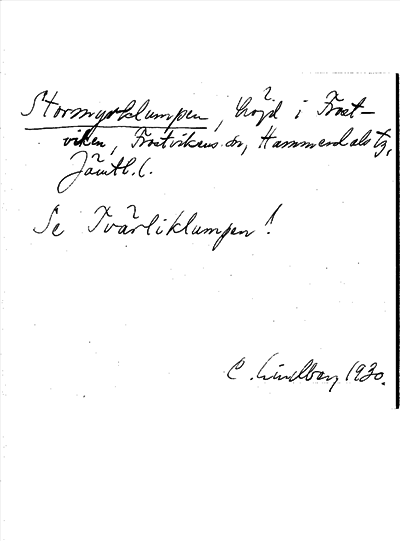 Stormyrklumpen, höjd i Frost-
viken, Frostvikens sn, Hammerdals tg,
Jämtl. l.
Se Tvärliklumpen!
C. Lindberg 1930.